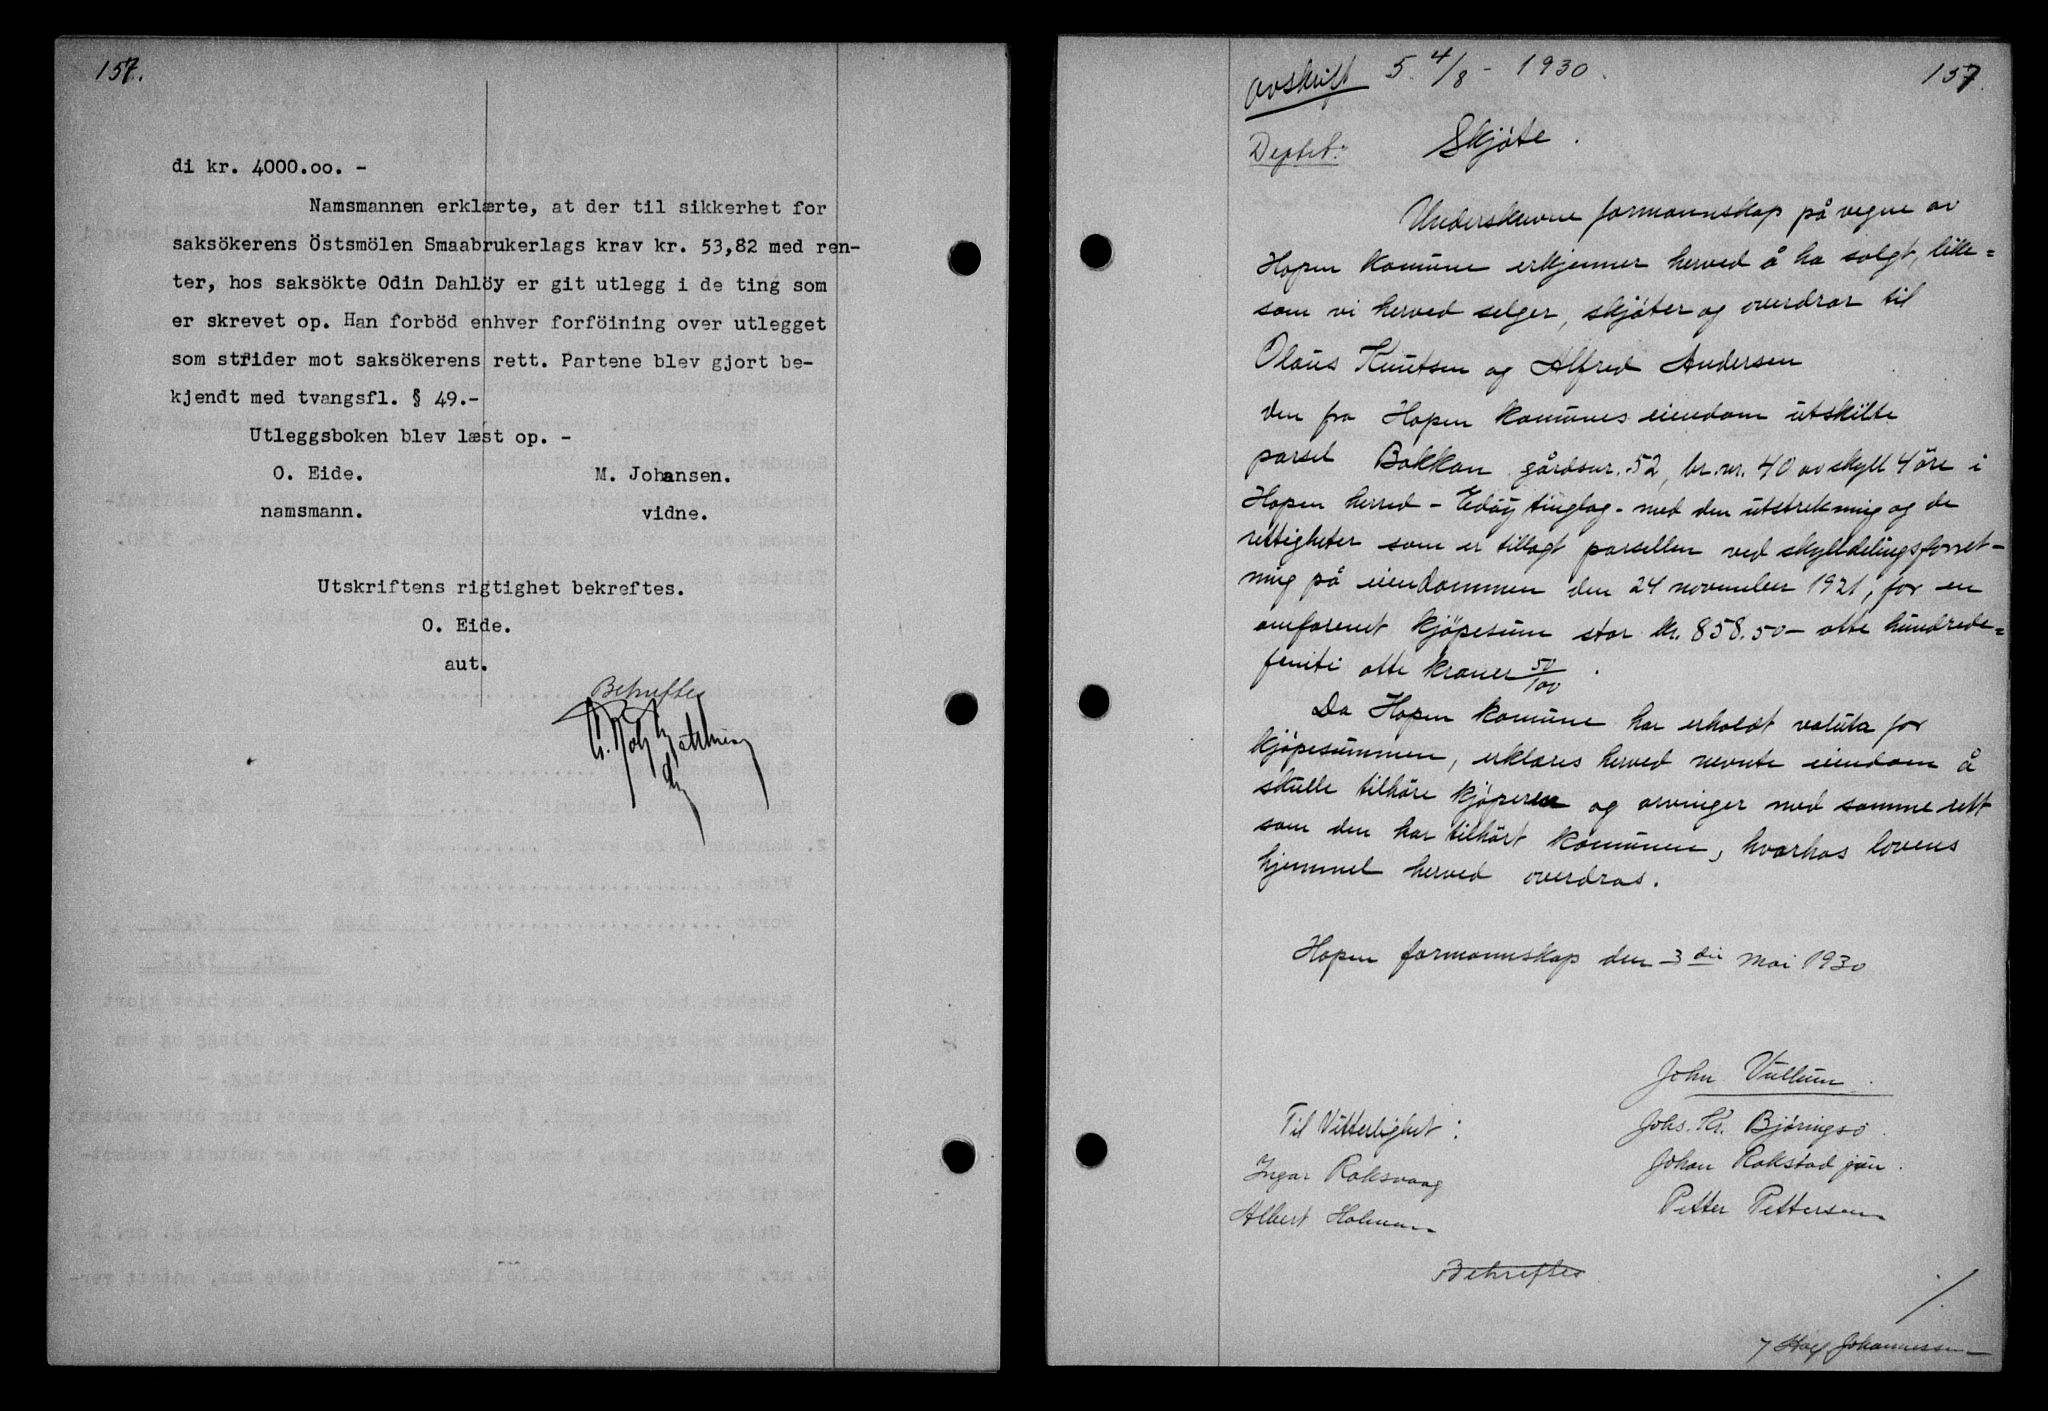 157.
di kr. 4000.oo. -
Namsmannen erklærte, at der til sikkerhet for
saksökerens Östsmölen Smaabrukerlags krav kr. 53,82 med ren-
ter, hos saksökte Odin Dahlöy er git utlegg i de ting som
er skrevet op. Han forböd enhver forföining over utlegget
som strider mot saksökerens rett. Partene blev gjort be-
kjendt med tvangsfl. § 49.-
Utleggsboken blev læst op. -
O. Eide. M. Johansen.
namsmann. vidne.
Utskriftens rigtighet bekreftes.
O. Eide.
aut.
Bekreftes
Avskrift 5. 4/8 - 1930. 157.
Deptet: Skjøte.
Underskrevne formannskap på vegne av
Hopen komune erkjenner herved å ha solgt, like=
som vi herved selger, skjøter og overdrar til
Olaus Knutsen og Alfred Andersen
den fra Hopen komunes eiendom utskilte
parsel Bakkan gårdsnr. 52, br.nr. 40 av skyll 4 öre i
Hopen herred - Edöy tinglag - med den utstrekning og de
rettigheter som er tillagt parsellen ved skylldelingsforret-
ning på eiendommen den 24 november 1921, for en
omforenet kjöpesum stor kr. 858.50 - otte hundrede=
femti otte kroner 50/100.
Da Hopen komune har erholdt valuta for
kjøpesummen, erklæres herved nevnte eiendom å
skulle tilhöre kjöperen og arvinger med samme rett
som den har tilhört komunen, hvorhos lovens
hjemmel herved overdras.
Hopen formannskap den 3die mai 1930
John Vullum.
Til Vitterlighet: Johs. Kr. Björingsö.
Ingar Roksvaag Johan Rokstad jun.
Albert Holman Petter Pettersen
Bekreftes
Johannessen